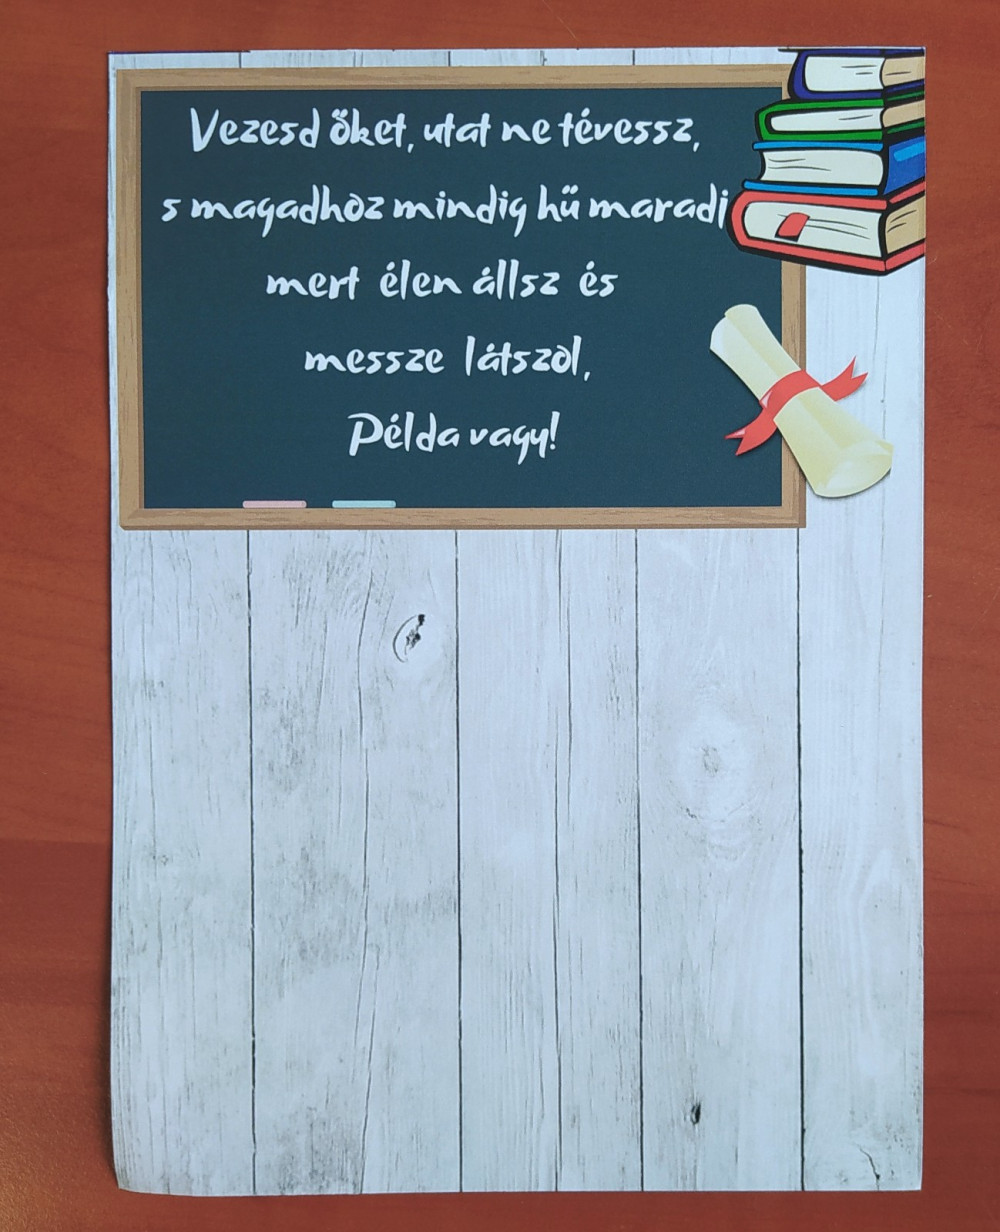 Vezesd őket, utat ne tévessz,
s magadhoz mindig hű maradj
mert élen állsz és
messze látszol,
Példa vagy!